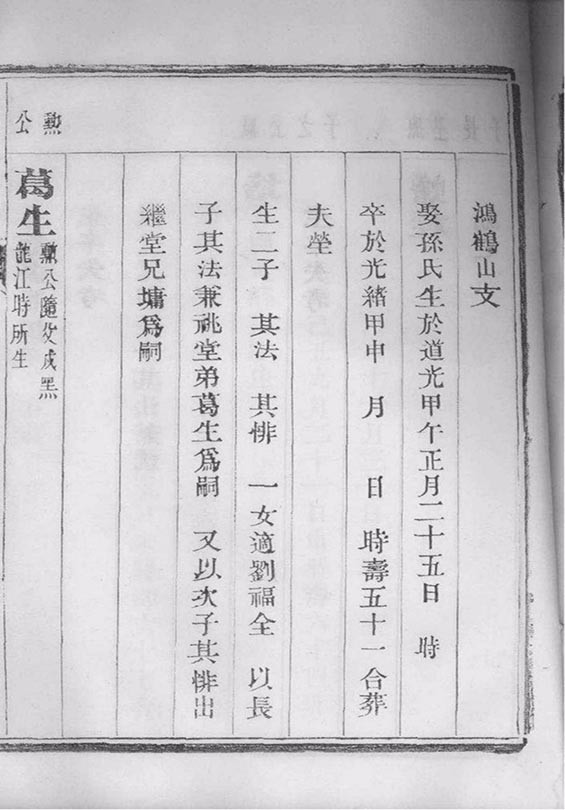 鴻鶴山支
娶孫氏生於道光甲午正月二十五日 時
卒於光緒甲申 月 日 時壽五十一合葬
夫塋
生二子 其法 其悱 一女適劉福全 以長
子其法兼祧堂弟葛生爲嗣 又以次子其悱出
繼堂兄墉爲嗣
勲公
葛生
勲公隨父戍黑
龍江時所生